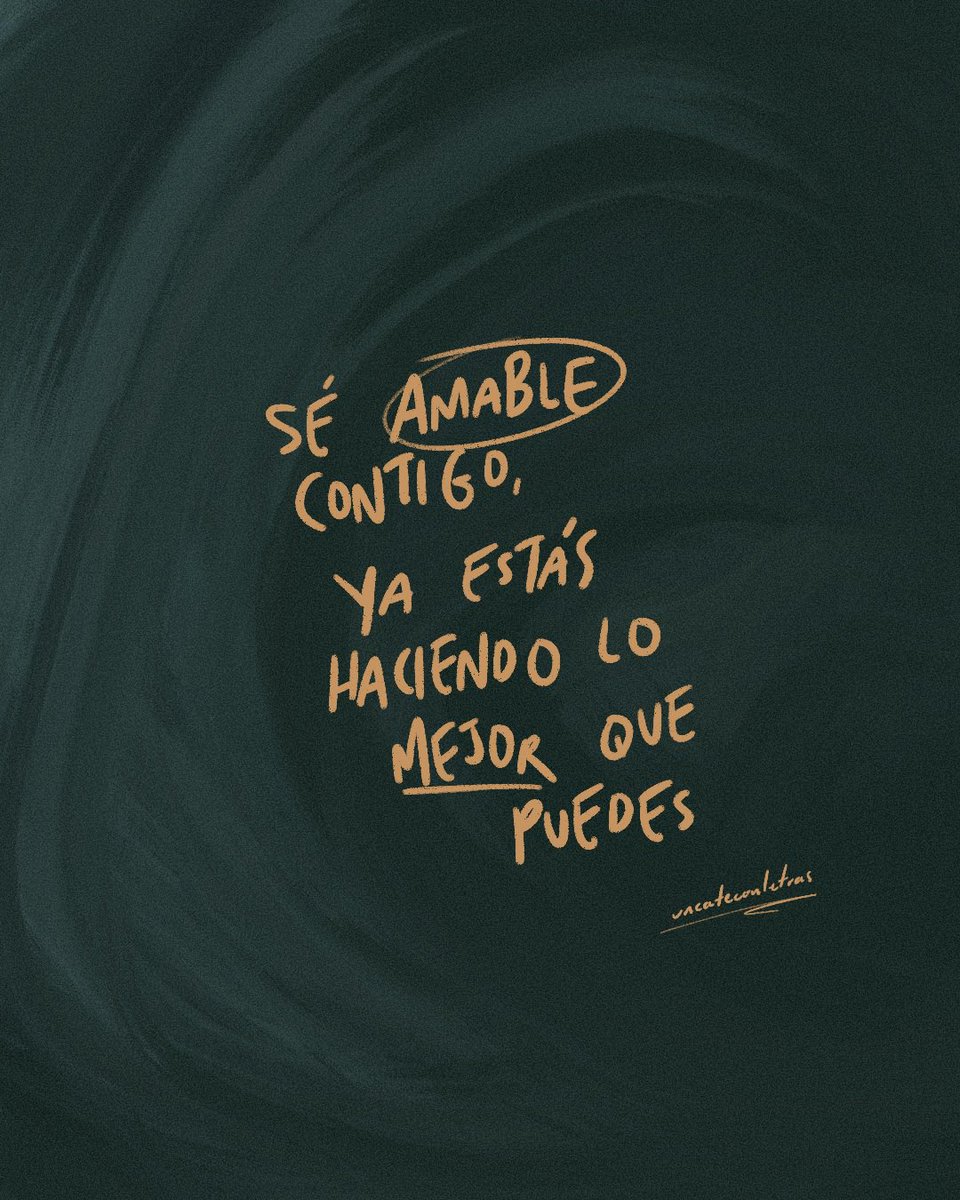 SÉ AMABLE
CONTIGO,
YA ESTÁS
HACIENDO LO
MEJOR QUE
PUEDES
uncafeconletras